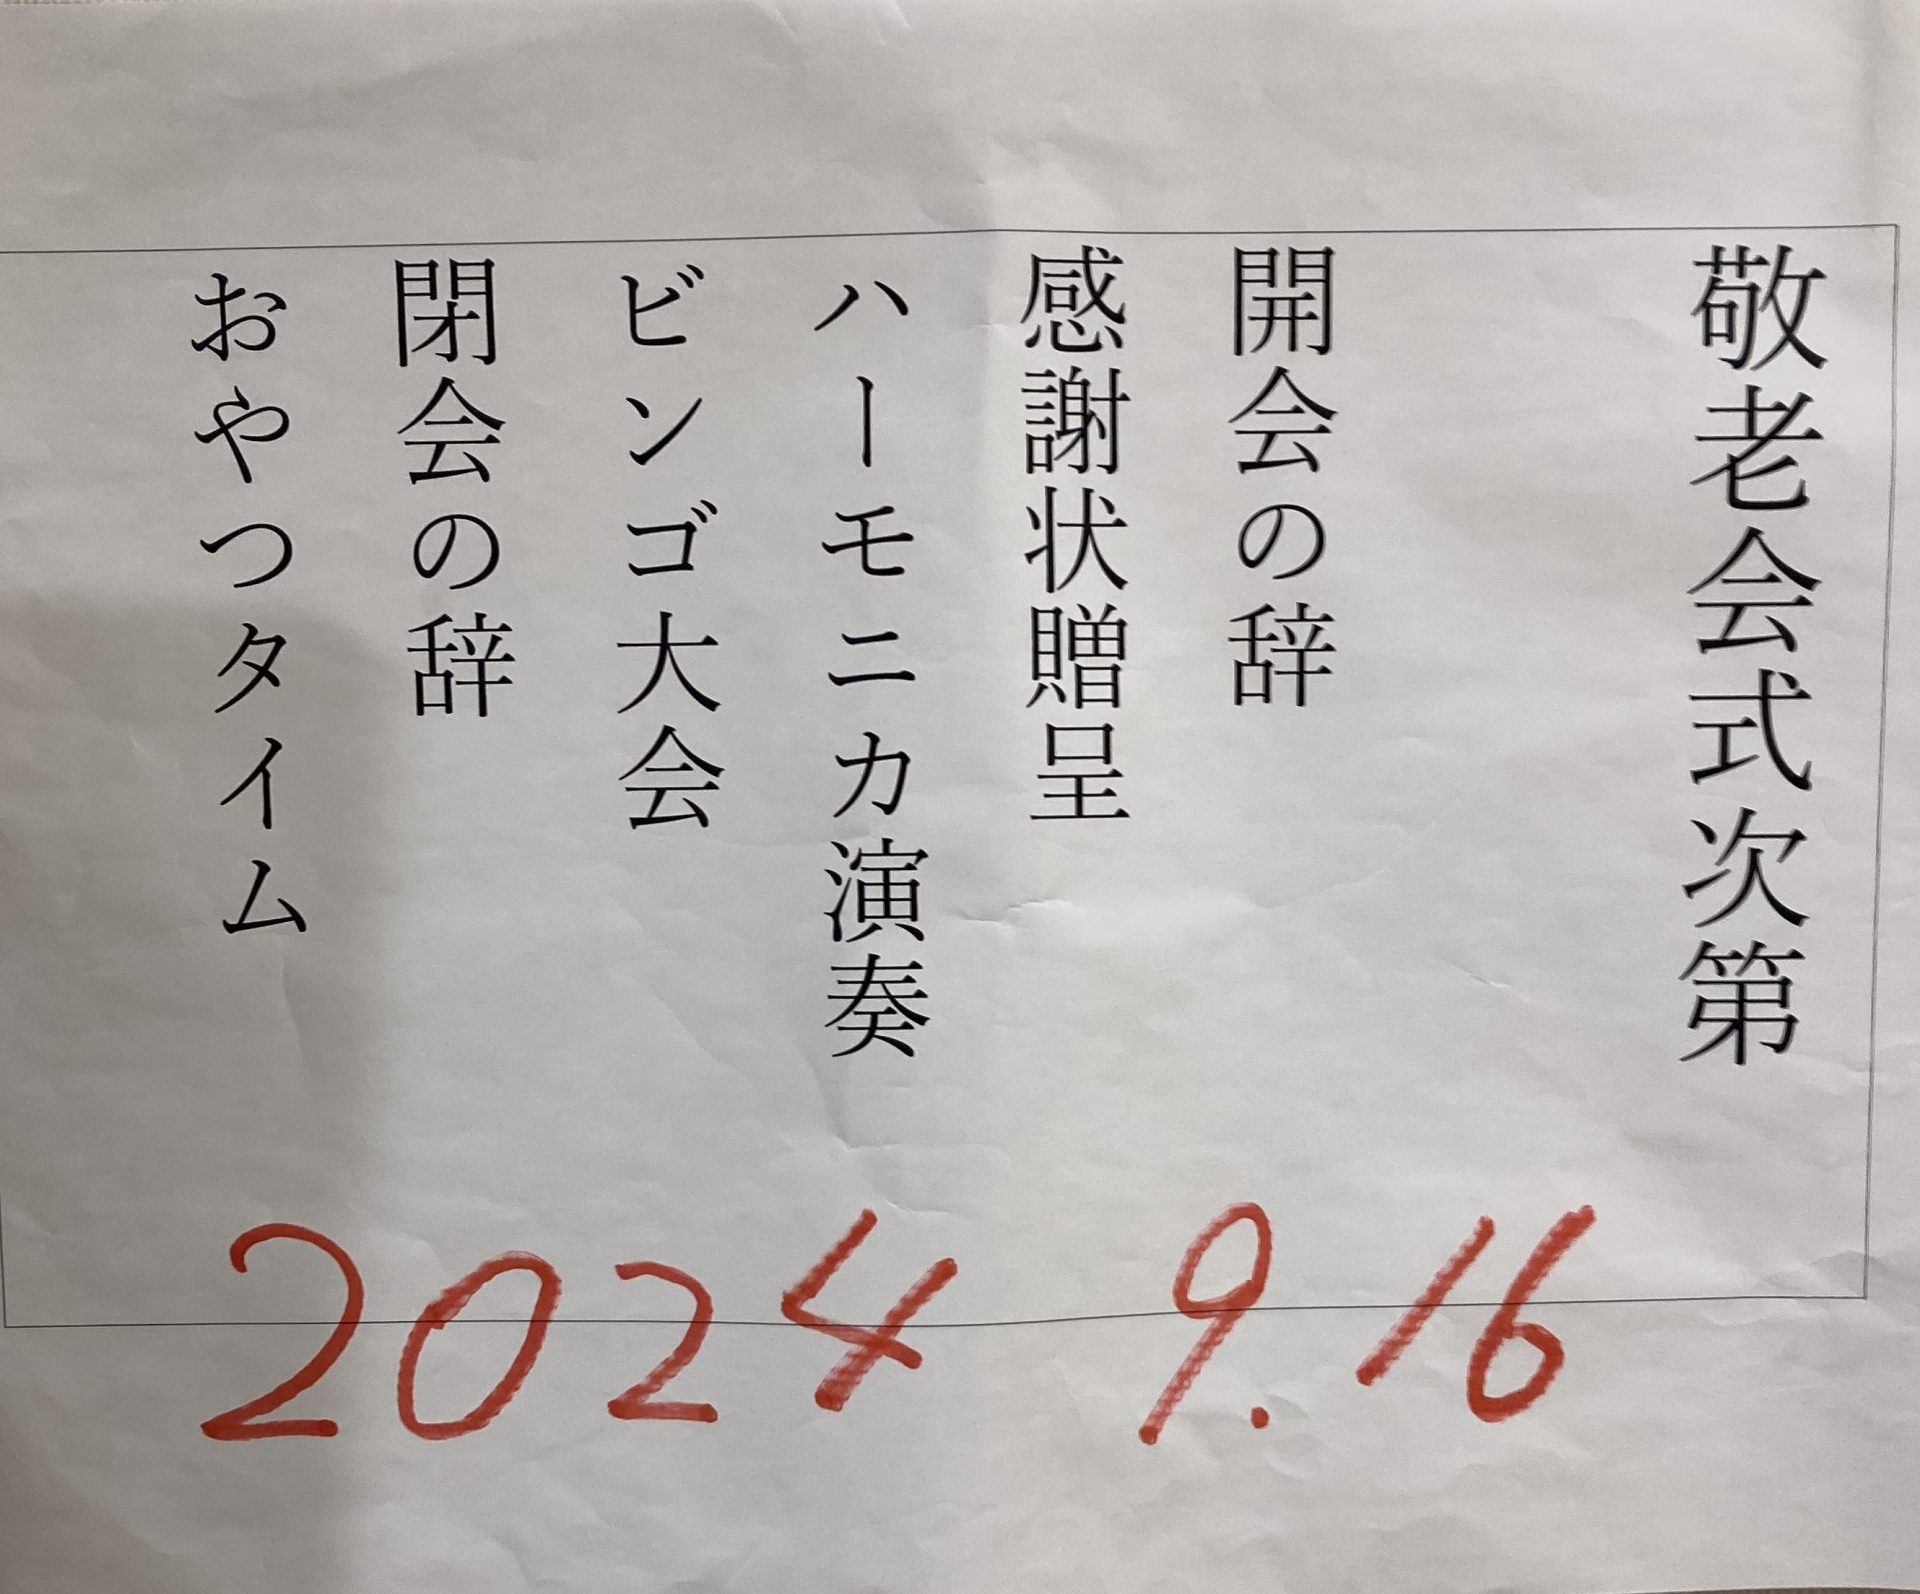 敬老会式次第
開会の辞
感謝状贈呈
ハーモニカ演奏
ビンゴ大会
閉会の辞
おやつタイム
2024 9.16